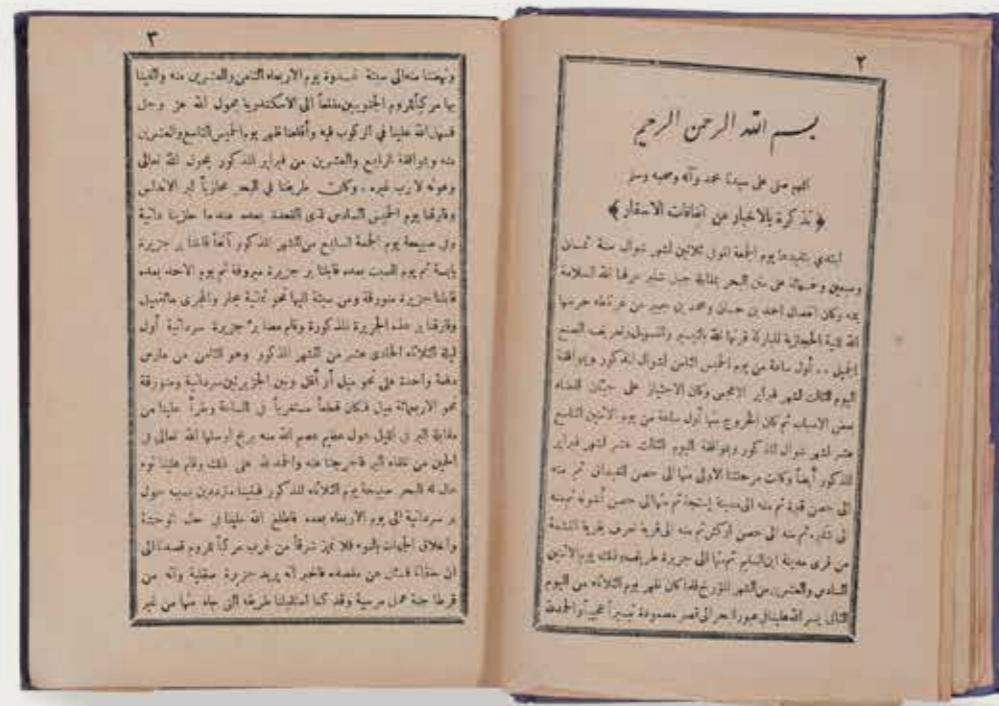 ٢
بسم الله الرحمن الرحيم
اللهم صلى على سيدنا محمد وآله وصحبه وسلم
﴿ تذكرة بالاخبار عن اتفاقات الاسفار ﴾
ابتدي بتقييدها يوم الجمعة الموفي ثلاثين لشهر شوال سنة ثمان
وسبعين وخمسمائة على متن البحر بمقابلة جبل شلير عرفنا الله السلامة
بمنه وكان انفصال احمد بن حسان ومحمد بن جبير من غرناطة حرسها
الله للنية الحجازية المباركة قرنها الله بالتيسير والتسهيل وتعريف الصنع
الجميل .. أول ساعة من يوم الخميس الثامن لشوال المذكور وبموافقة
اليوم الثالث لشهر فبراير الاعجمي وكان الاجتياز على جيان لقضاء
بعض الاسباب ثم كان الخروج منها أول ساعة من يوم الاثنين التاسع
عشر لشهر شوال المذكور وبموافقة اليوم الثالث عشر لشهر فبراير
المذكور أيضاً وكانت مرحلتنا الاولى منها الى حصن القبذاق ثم منه
الى حصن قبرة ثم منه الى مدينة إستجة ثم منها الى حصن أشونه ثم منه
الى شلبر ثم منه الى حصن اركش ثم منه الى قرية تعرف بقرية القشمة
من قرى مدينة ابن السليم ثم منها الى جزيرة طريف وذلك يوم الاثنين
السادس والعشرين من الشهر المؤرخ فلما كان ظهر يوم الثلاثاء من اليوم
الثاني يسر الله علينا في عبور البحر الى قصر مصمودة تيسيراً عجيباً والحمد لله
٣
ونهضنا منه الى سبتة غدوة يوم الاربعاء الثامن والعشرين منه وألفينا
بها مركباً للروم الجنويين مقلعاً الى الاسكندرية بحول الله عز وجل
فسهل الله علينا في الركوب فيه وأقلعنا ظهر يوم الخميس التاسع والعشرين
منه وبموافقة الرابع والعشرين من فبراير المذكور بحول الله تعالى
وعونه لا رب غيره . وكان طريقنا في البحر محاذياً لبر الاندلس
وفارقناه يوم الخميس السادس لذى القعدة بعده عندما حاذينا دانية
وفي صبيحة يوم الجمعة السابع من الشهر المذكور آنفاً قابلنا بر جزيرة
يابسة ثم يوم السبت بعده قابلنا بر جزيرة ميورقة ثم يوم الاحد بعده
قابلنا جزيرة منورقة ومن سبتة اليها نحو ثمانية مجار والمجرى مائة ميل
وفارقنا بر هذه الجزيرة المذكورة وقام معنا بر جزيرة سردانية أول
ليلة الثلاثاء الحادي عشر من الشهر المذكور وهو الثامن من مارس
دفعة واحدة على نحو ميل أو أقل وبين الجزيرتين سردانية ومنورقة
نحو الاربعمائة ميل فكان قطعاً مستغرباً في السرعة وطرأ علينا من
مقابلة البر في الليل هول عظيم عصم الله منه بريح أرسلها الله تعالى في
الحين من تلقاء البر فأخرجنا عنه والحمد لله على ذلك وقام علينا نوء
هال له البحر صبيحة يوم الثلاثاء المذكور فبقينا مترددين بسببه حول
بر سردانية الى يوم الاربعاء بعده فأطلع الله علينا في حال الوحشة
وانغلاق الجهات بالنوء فلا نميز شرقاً من غرب مركباً للروم قصدنا الى
ان حاذانا فسئل عن مقصده فأخبر أنه يريد جزيرة صقلية وأنه من
قرطاجنة عمل مرسية وقد كنا استقبلنا طريقه التي جاء منها من غير